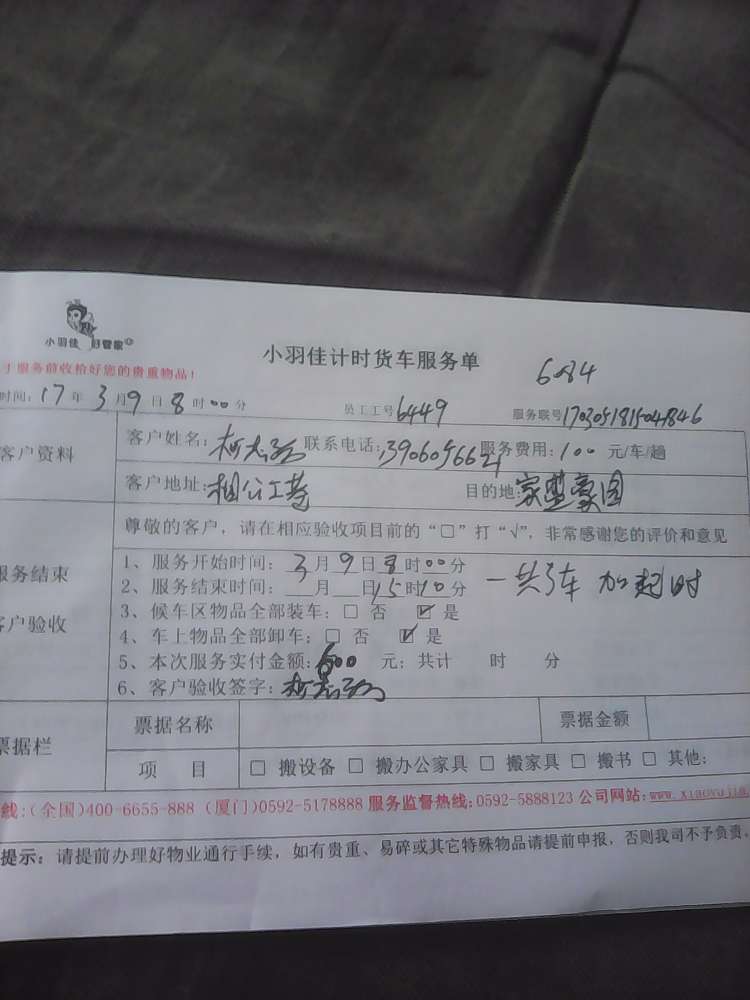 小羽佳 好管家
小羽佳计时货车服务单
6084
服务前收拾好您的贵重物品！
时间：17年3月9日8时00分 员工工号6449 服务联号
客户资料
客户姓名： 联系电话： 服务费用：100元/车/趟
客户地址： 目的地：
尊敬的客户，请在相应验收项目前的“□”打“√”，非常感谢您的评价和意见
服务结束
客户验收
1、服务开始时间：3月9日8时00分
2、服务结束时间：__月__日15时10分
一共 车 加 时
3、候车区物品全部装车：□ 否 ☑ 是
4、车上物品全部卸车：□ 否 ☑ 是
5、本次服务实付金额：600 元；共计 时 分
6、客户验收签字：
票据栏
票据名称 票据金额
项 目 □ 搬设备 □ 搬办公家具 □ 搬家具 □ 搬书 □ 其他：
线：(全国)400-6655-888 (厦门)0592-5178888 服务监督热线：0592-5888123 公司网站：
提示：请提前办理好物业通行手续，如有贵重、易碎或其它特殊物品请提前申报，否则我司不予负责。